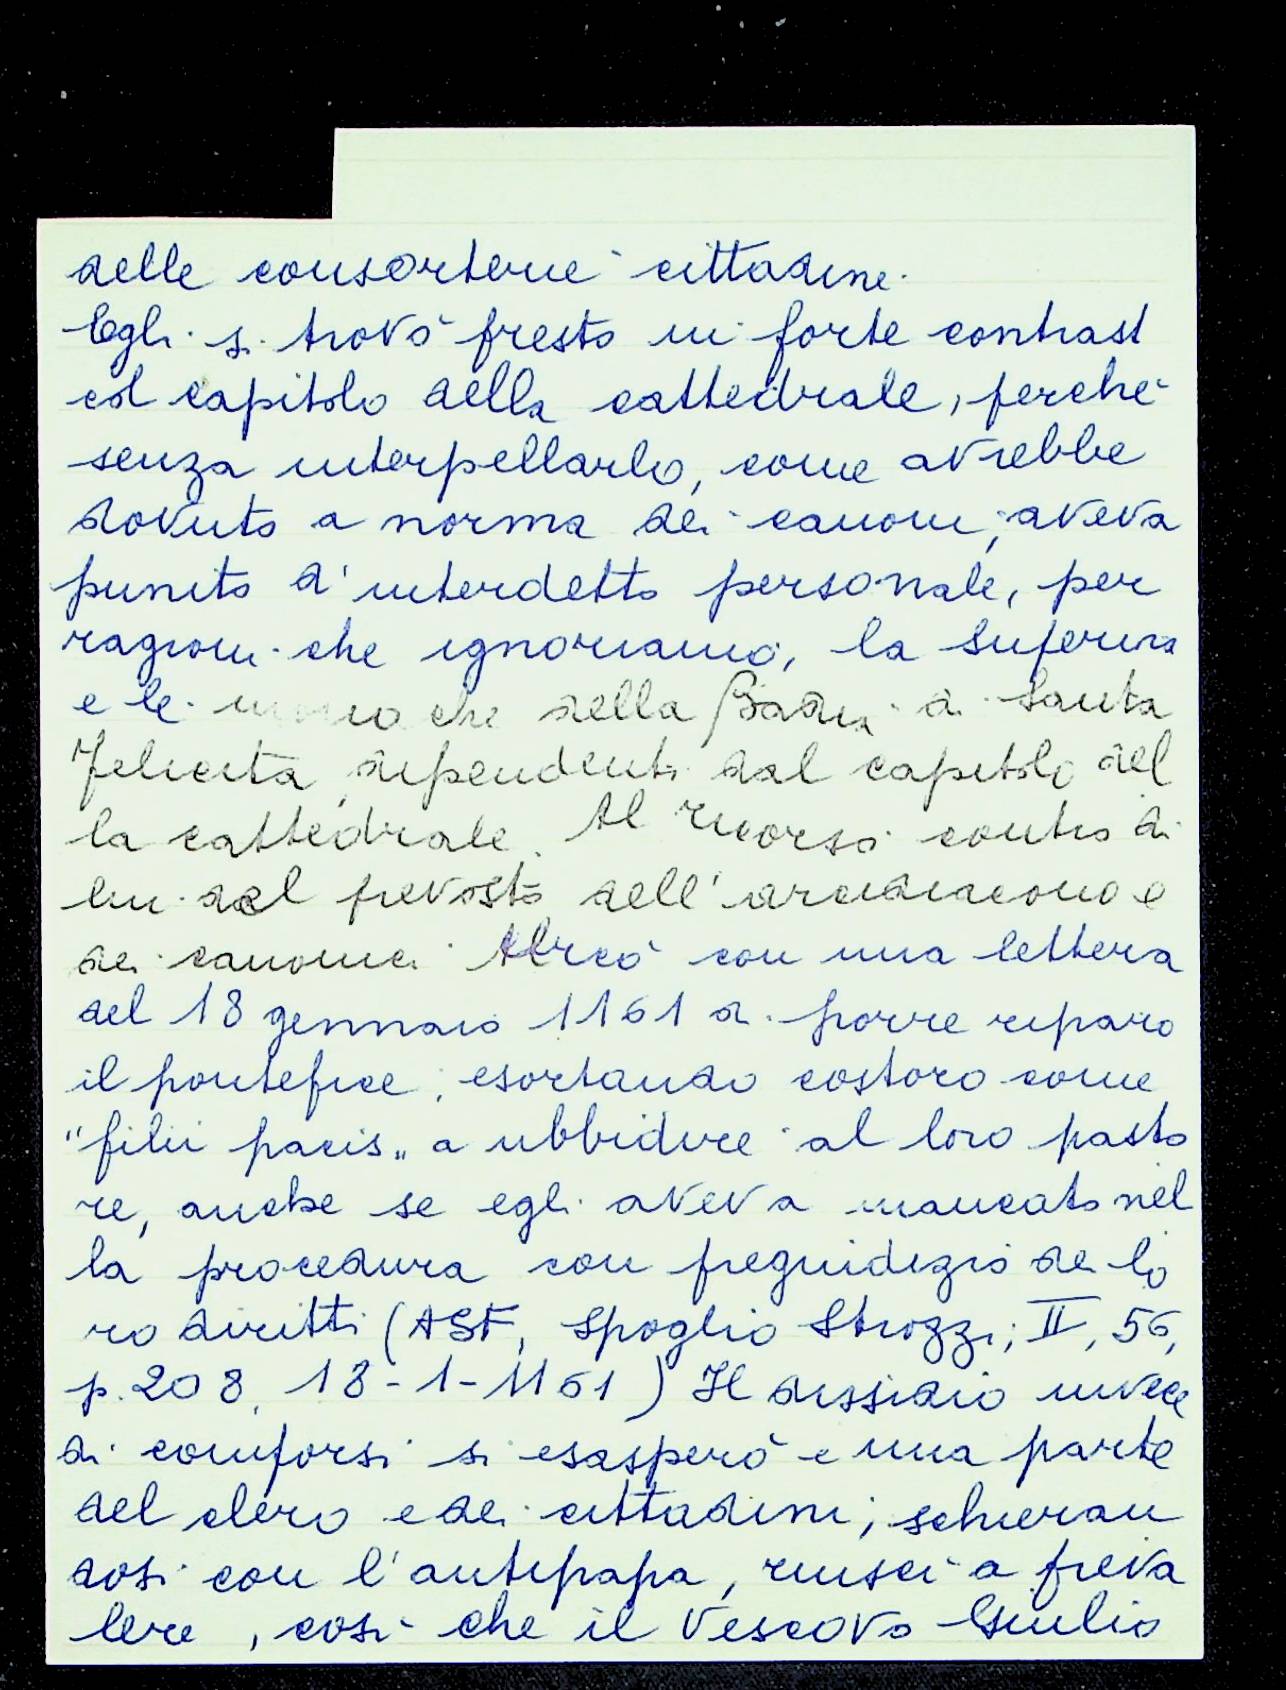 delle consorterie cittadine.
Egli si trovò presto in forte contrast
col capitolo della cattedrale, perché
senza interpellarlo, come avrebbe
dovuto a norma dei canoni, aveva
punito d'interdetto personale, per
ragioni che ignoriamo, la superiora
e le monache della Badia di Santa
Felicita, dipendenti dal capitolo del
la cattedrale. Al ricorso contro di
lui del prevosto dell'arcidiacono e
dei canonici cercò con una lettera
del 18 gennaio 1161 di porre riparo
il pontefice, esortando costoro come
"filii pacis„ a ubbidire al loro pasto
re, anche se egli aveva mancato nel
la procedura con pregiudizio dei lo
ro diritti (ASF, Spoglio Strozzi; II, 56,
p. 208, 18-1-1161) Il dissidio invece
di comporsi si esasperò e una parte
del clero e dei cittadini, schieran
dosi con l'antipapa, riuscì a preva
lere, così che il vescovo Giulio